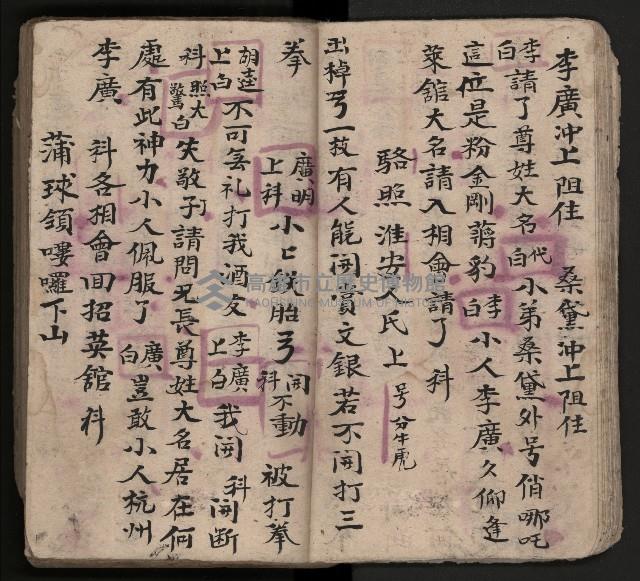 李廣冲上阻住 桑黛冲上阻住
李白請了尊姓大名代白小弟桑黛外号俏哪吒
這位是粉金剛蔣豹李白小人李廣久仰逢
萊舘大名請入相會請了 科
駱照淮安 氏上 号分牛虎
玉棹弓一技有人能開員文銀若不開打三
拳 廣明上科小上 胎弓開科不動 被打拳
胡逵上白不可無礼打我酒友李廣上白我開 科開断
科照大驚白失敬了請問兄長尊姓大名居在何
處有此神力小人佩服了廣白豈敢小人杭州
李廣 科各相會回招英舘科
蒲球領嘍囉下山
高雄市立歷史博物館
KAOHSIUNG MUSEUM OF HISTORY